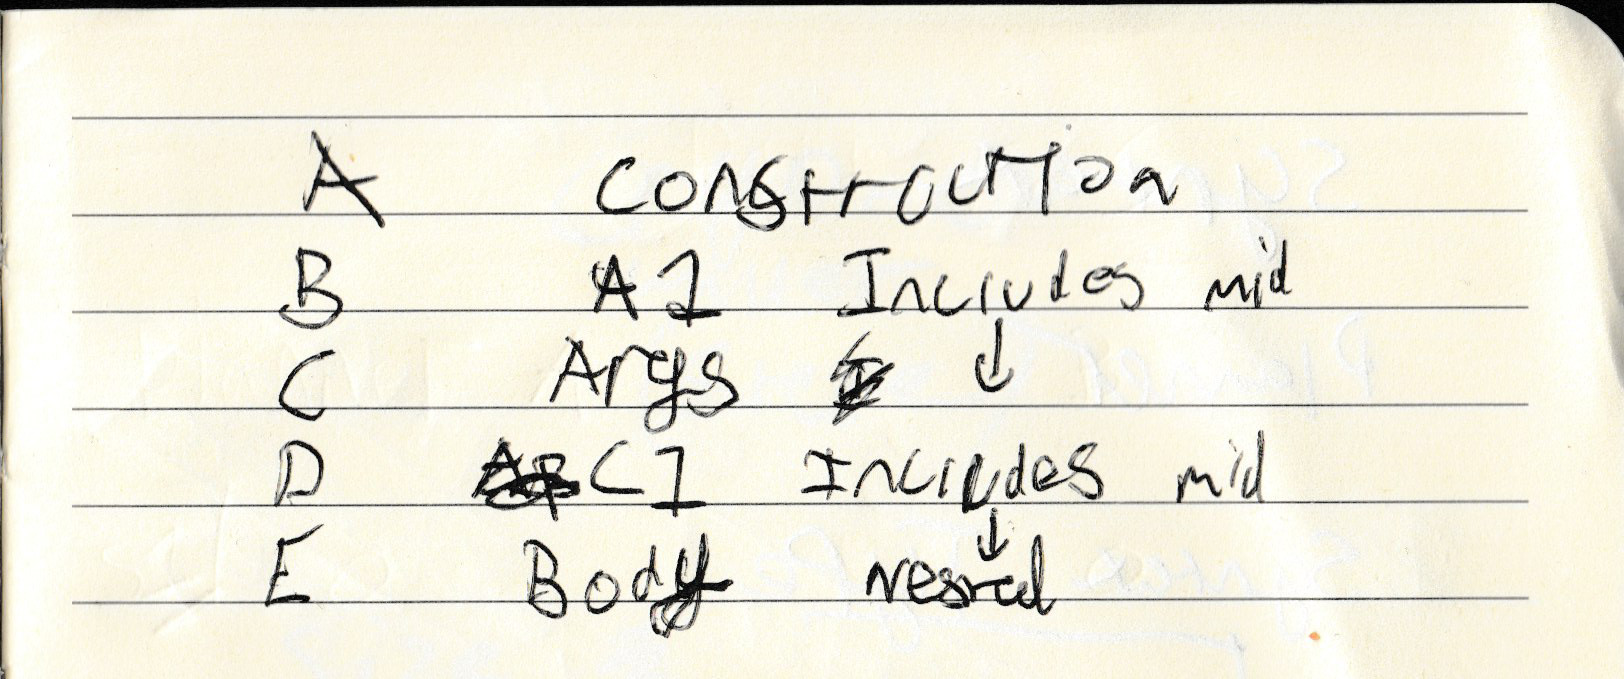 A Construction
B A1 Includes mid
C Args ↓
D C1 Includes mid
↓
E Body nested